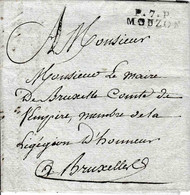 P. 7. P
MOUZON
A Monsieur
Monsieur Le maire
De Bruxelle Comte de
membre de la
D'honneur
a Bruxelles